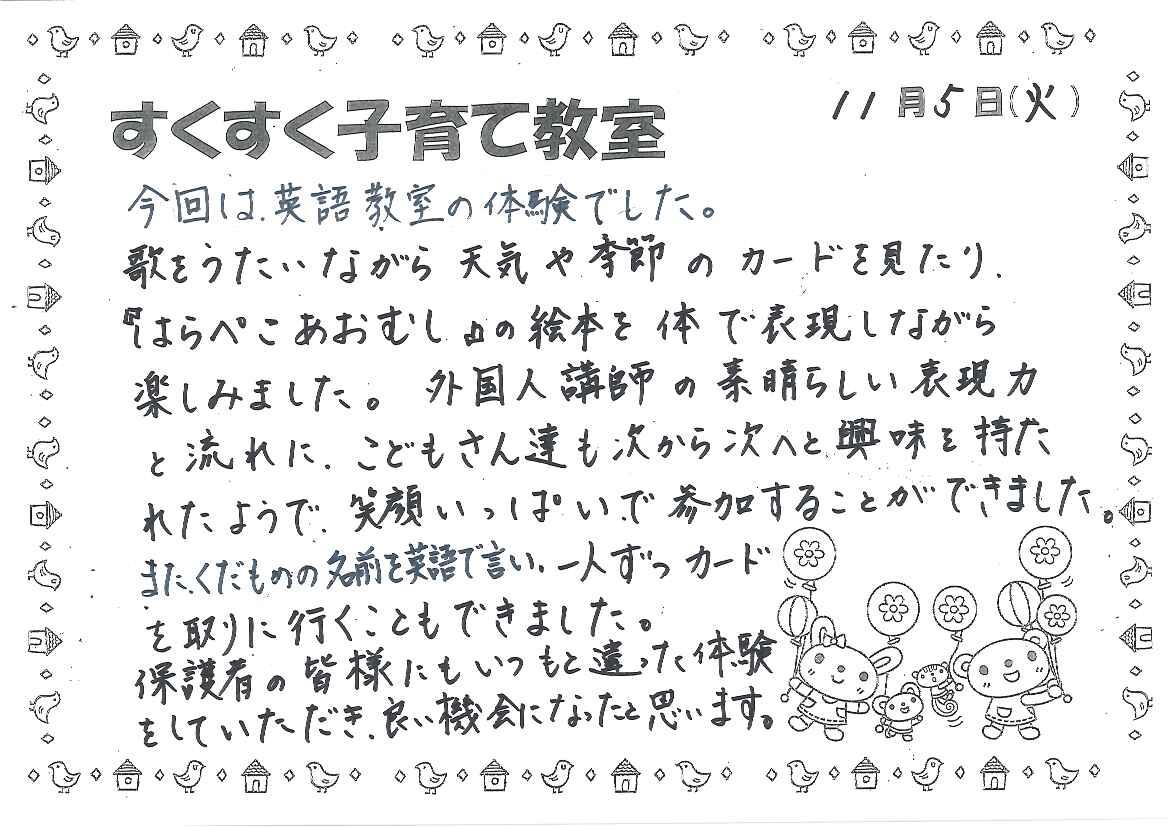 11月5日(火)
すくすく子育て教室
今回は、英語教室の体験でした。
歌をうたいながら 天気や季節のカードを見たり、
『はらぺこあおむし』の絵本を体で表現しながら
楽しみました。 外国人講師の素晴らしい表現力
と流れに、こどもさん達も次から次へと興味を持た
れたようで、笑顔いっぱいで参加することができました。
また、くだものの名前を英語で言い、一人ずつカード
を取りに行くこともできました。
保護者の皆様にもいつもと違った体験
をしていただき、良い機会になったと思います。